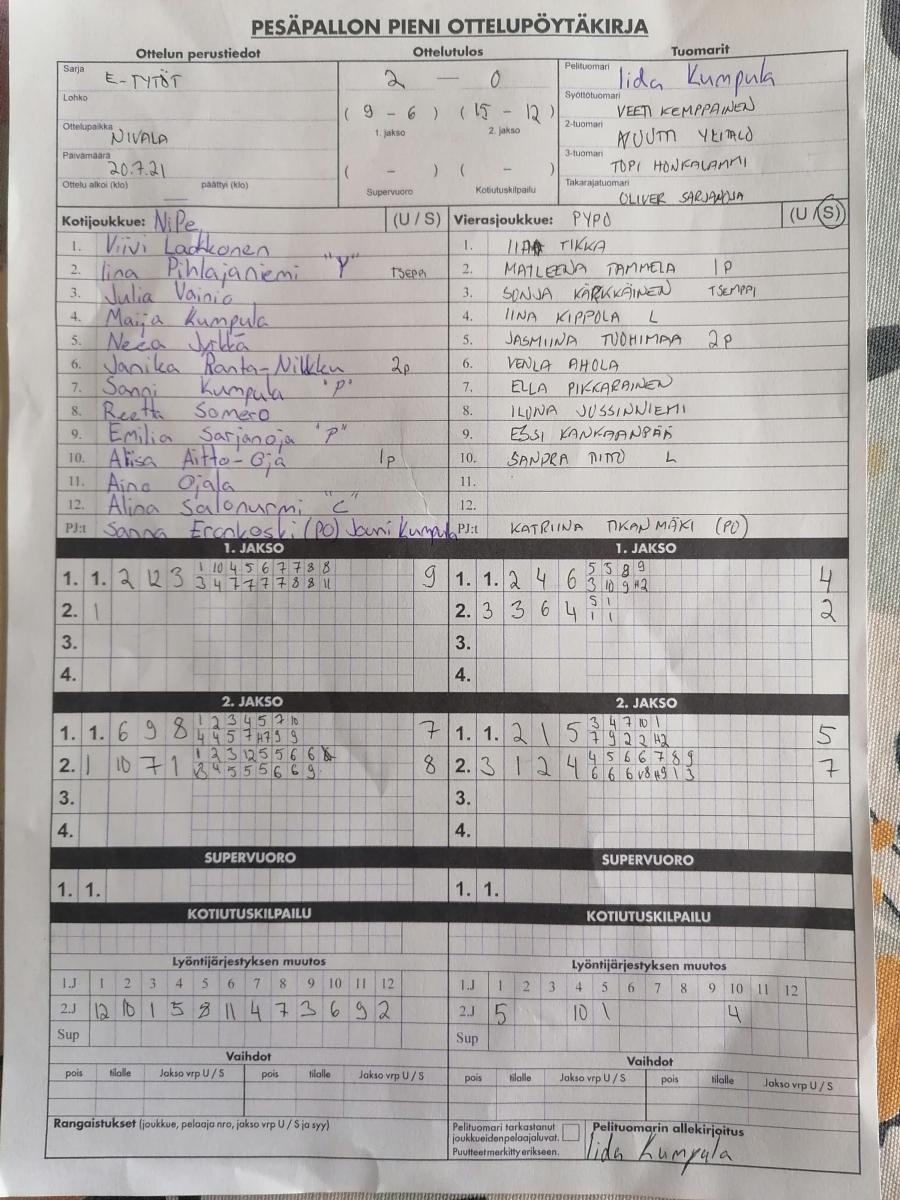 PESÄPALLON PIENI OTTELUPÖYTÄKIRJA
Ottelun perustiedot Ottelutulos Tuomarit
Sarja E-TYTÖT
Lohko
Ottelupaikka NIVALA
Päivämäärä 20.7.21
Ottelu alkoi (klo) päättyi (klo)
2 — 0
( 9 - 6 ) ( 15 - 12 )
1. jakso 2. jakso
( - ) ( - )
Supervuoro Kotiutuskilpailu
Pelituomari Iida Kumpula
Syöttötuomari VEETI KEMPPAINEN
2-tuomari NUUTTI YLITALO
3-tuomari TOPI HONKALAMMI
Takarajatuomari OLIVER SARJANOJA
Kotijoukkue: NiPe (U / S)
1. Viivi Laakkonen
2. Iina Pihlajaniemi "Y" TSEPPI
3. Julia Vainio
4. Maija Kumpula
5. Neea Jyrkkä
6. Janika Ranta-Nilkku 2p
7. Sanni Kumpula "P"
8. Reetta Somero
9. Emilia Sarjanoja "P"
10. Alisa Aitto-Oja 1p
11. Aino Ojala
12. Alina Salonurmi "C"
PJ:t Sanna Eronkoski (PO) Jouni Kumpula
Vierasjoukkue: PYPO (U / S)
1. TIKKA
2. MATLEENA TAMMELA 1P
3. SONJA KÄRKKÄINEN TSEMPPI
4. IINA KIPPOLA L
5. JASMIINA TUOHIMAA 2P
6. VENLA AHOLA
7. ELLA PIKKARAINEN
8. ILONA JUSSINNIEMI
9. ESSI KANKAANPÄÄ
10. SANDRA L
11.
12.
PJ:t KATRIINA TIKANMÄKI (PO)
1. JAKSO
1. 1. 2 12 3 1 10 4 5 6 7 7 8 8 9
3 4 7 7 7 7 8 8 11
2. 1
3.
4.
1. JAKSO
1. 1. 2 4 6 5 5 8 9 4
3 10 9 H2
2. 3 3 6 4 5 1 2
1 1
3.
4.
2. JAKSO
1. 1. 6 9 8 1 2 3 4 5 7 10 7
4 4 5 7 H7 9 9
2. 1 10 7 1 1 2 3 12 5 5 6 6 8
3 4 5 5 5 6 6 9
3.
4.
2. JAKSO
1. 1. 2 1 5 3 4 7 10 1 5
7 9 2 2 H2
2. 3 1 2 4 4 5 6 6 7 8 9 7
6 6 6 H9 1 3
3.
4.
SUPERVUORO
1. 1.
SUPERVUORO
1. 1.
KOTIUTUSKILPAILU
KOTIUTUSKILPAILU
Lyöntijärjestyksen muutos
1.J 1 2 3 4 5 6 7 8 9 10 11 12
2.J 12 10 1 5 8 11 4 7 3 6 9 2
Sup
Lyöntijärjestyksen muutos
1.J 1 2 3 4 5 6 7 8 9 10 11 12
2.J 5 10 1 4
Sup
Vaihdot
pois tilalle Jakso vrp U / S pois tilalle Jakso vrp U / S
Vaihdot
pois tilalle Jakso vrp U / S pois tilalle Jakso vrp U / S
Rangaistukset (joukkue, pelaaja nro, jakso vrp U / S ja syy)
Pelituomari tarkastanut
joukkueidenpelaajaluvat.
Puutteet merkitty erikseen.
Pelituomarin allekirjoitus
Iida Kumpula